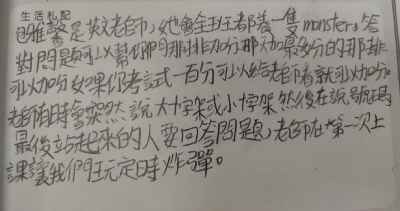 生活札記
是英文老師,她會全班都養一隻monster,答
對問題可以幫你們那排加分那加最多分的那排
可以加分如果你考試一百分可以給老師看就可以加分。
老師有時會突然說大十字架或小十字架然後在說號碼
最後站起來的人要回答問題,老師在第一次上
課讓我們玩定時炸彈。